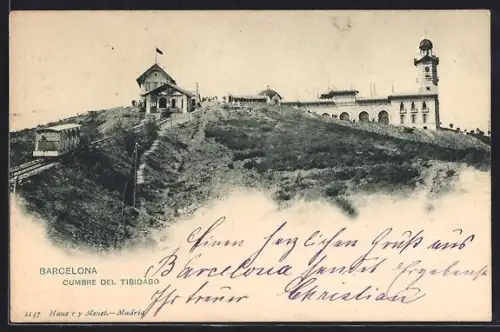 BARCELONA
CUMBRE DEL TIBIDABO
Einen herzlichen Gruß aus
Barcelona sendet Ergebenst
Ihr treuer Christian
1147 Hauser y Menet.-Madrid